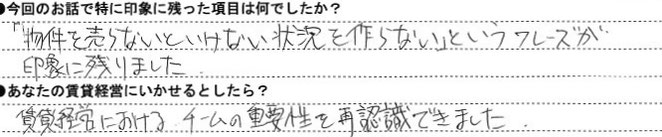 ●今回のお話で特に印象に残った項目は何でしたか？
「物件を売らないといけない状況を作らない」というフレーズが
印象に残りました.
●あなたの賃貸経営にいかせるとしたら？
賃貸経営における チームの重要性を再認識できました.